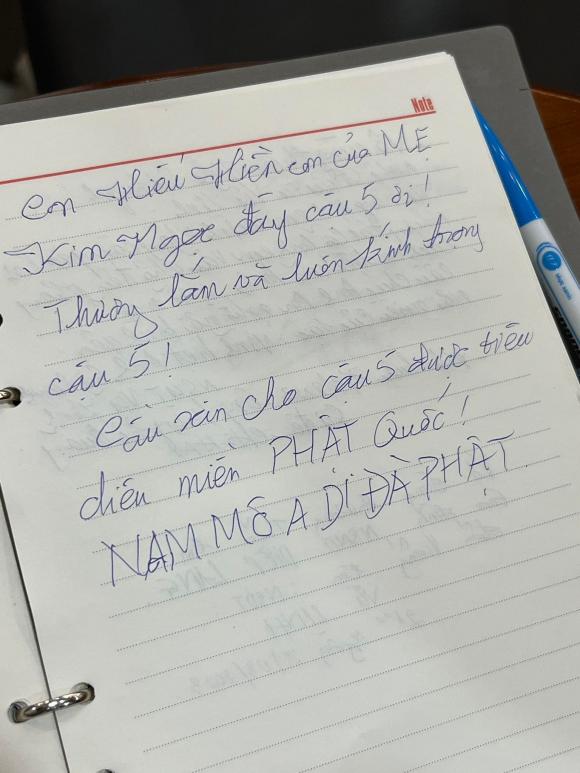 Note
Con Hiếu Hiền con của MẸ
Kim Ngọc đây cậu 5 ơi!
Thương lắm và luôn kính trọng
cậu 5!
Cầu xin cho cậu 5 được tiêu
diêu miền PHẬT Quốc!
NAM MÔ A DI ĐÀ PHẬT.